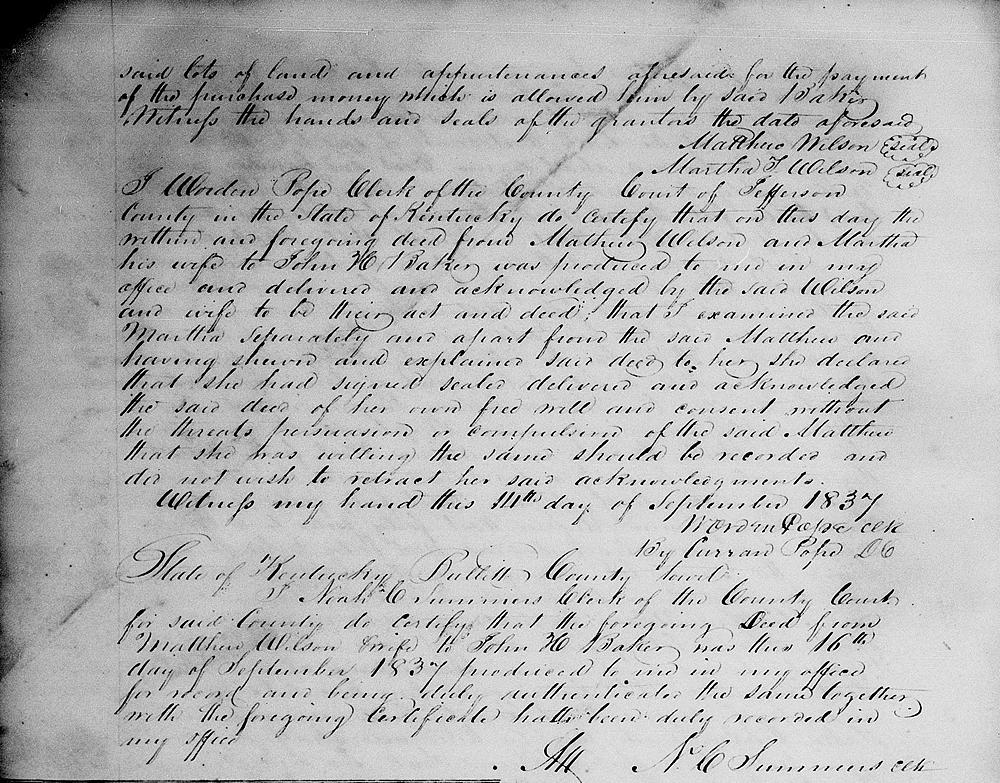 said lots of land and appurtenances aforesaid for the payment
of the purchase money which is allowed him by said Baker
Witness the hands and seals of the grantors the date aforesaid
Matthew Wilson seal
Martha T. Wilson seal
I Worden Pope Clerk of the County Court of Jefferson
County in the State of Kentucky do certify that on this day the
within and foregoing deed from Mathew Wilson and Martha
his wife to John H Baker was produced to me in my
office and delivered and acknowledged by the said Wilson
and wife to be their act and deed; that I examined the said
Martha separately and apart from the said Matthew and
having shewn and explained said deed to her she declared
that she had signed sealed delivered and acknowledged
the said deed of her own free will and consent without
the threats persuasion or compulsion of the said Matthew
that she was willing the same should be recorded and
did not wish to retract her said acknowledgments.
Witness my hand this 14th day of September 1837
Worden Pope clk
By Curran Pope DC
State of Kentucky Bullitt County Court
I Noah C Summers Clerk of the County Court
for said County do certify that the foregoing Deed from
Matthew Wilson & wife to John H Baker was this 16th
day of September 1837 produced to me in my office
for record and being duly authenticated the same together
with the foregoing Certificate hath been duly recorded in
my office
Att N. C Summers clk